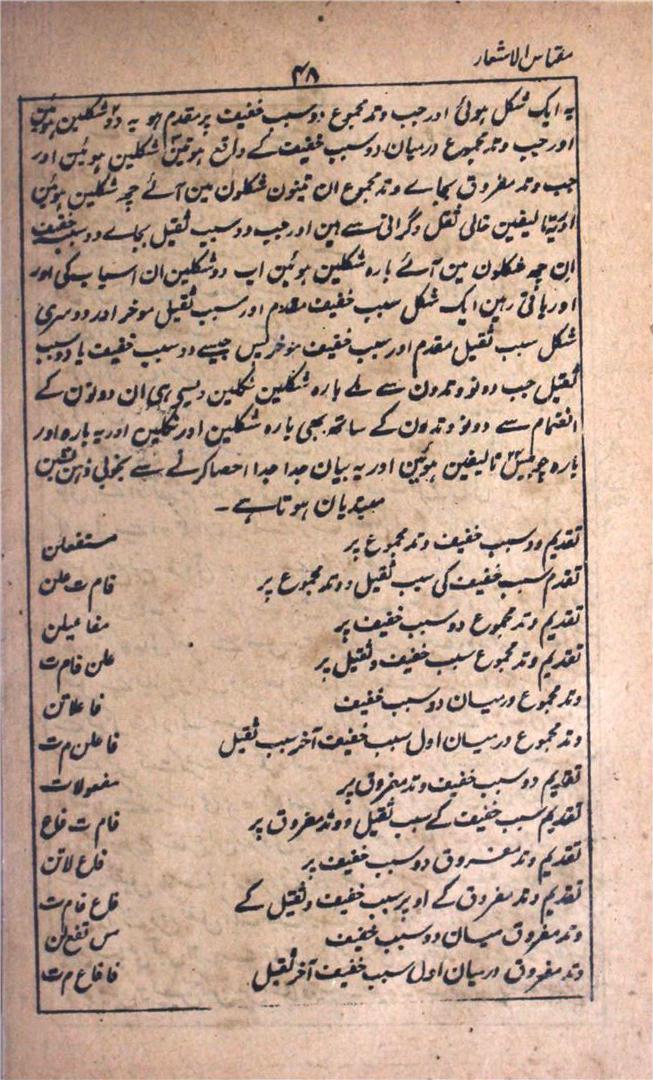 مقیاس الاشعار
۴۸
یہ ایک شکل ہوئی اور جب وتد مجموع دو سبب خفیف پر مقدم ہو یہ دو شکلین ہوئین
اور جب وتد مجموع درمیان دو سبب خفیف کے واقع ہو تین شکلین ہوئین اور
جب وتد مفروق بجاے وتد مجموع ان تینون شکلون مین آئے چھ شکلین ہوئین
اور یہ تالیفین خالی ثقل و گرانی سے ہین اور جب دو سبب ثقیل بجاے دو سبب خفیف
ان چھ شکلون مین آئے بارہ شکلین ہوئین اب دو شکلین ان اسباب کی اور
اور باقی رہین ایک شکل سبب خفیف مقدم اور سبب ثقیل موخر اور دوسری
شکل سبب ثقیل مقدم اور سبب خفیف موخر پس جیسے دو سبب خفیف یا دو سبب
ثقیل جب دونو وتدون سے ملے بارہ شکلین نکلین ویسی ہی ان دونون کے
انضمام سے دونو وتدون کے ساتھ بھی بارہ شکلین اور نکلین اور یہ بارہ اور
بارہ چوبیس تالیفین ہوئین اور یہ بیان جدا جدا احصا کرنے سے بخوبی ذہن نشین
مبتدیان ہوتا ہے ۔
تقدیم دو سبب خفیف وتد مجموع پر مستفعلن
تقدم سبب خفیف کی سبب ثقیل و وتد مجموع پر فام ت علن
تقدیم وتد مجموع دو سبب خفیف پر مفاعیلن
تقدیم وتد مجموع سبب خفیف و ثقیل پر علن فام ت
وتد مجموع درمیان دو سبب خفیف فاعلاتن
وتد مجموع درمیان اول سبب خفیف آخر سبب ثقیل فاعلن م ت
تقدیم دو سبب خفیف وتد مفروق پر مفعولات
تقدیم سبب خفیف کے سبب ثقیل و وتد مفروق پر فام ت فاع
تقدیم وتد مفروق دو سبب خفیف پر فاع لاتن
تقدیم وتد مفروق کے اوپر سبب خفیف و ثقیل کے فاع فام ت
وتد مفروق میان دو سبب خفیف مس تفع لن
وتد مفروق درمیان اول سبب خفیف آخر ثقیل فا فاع م ت